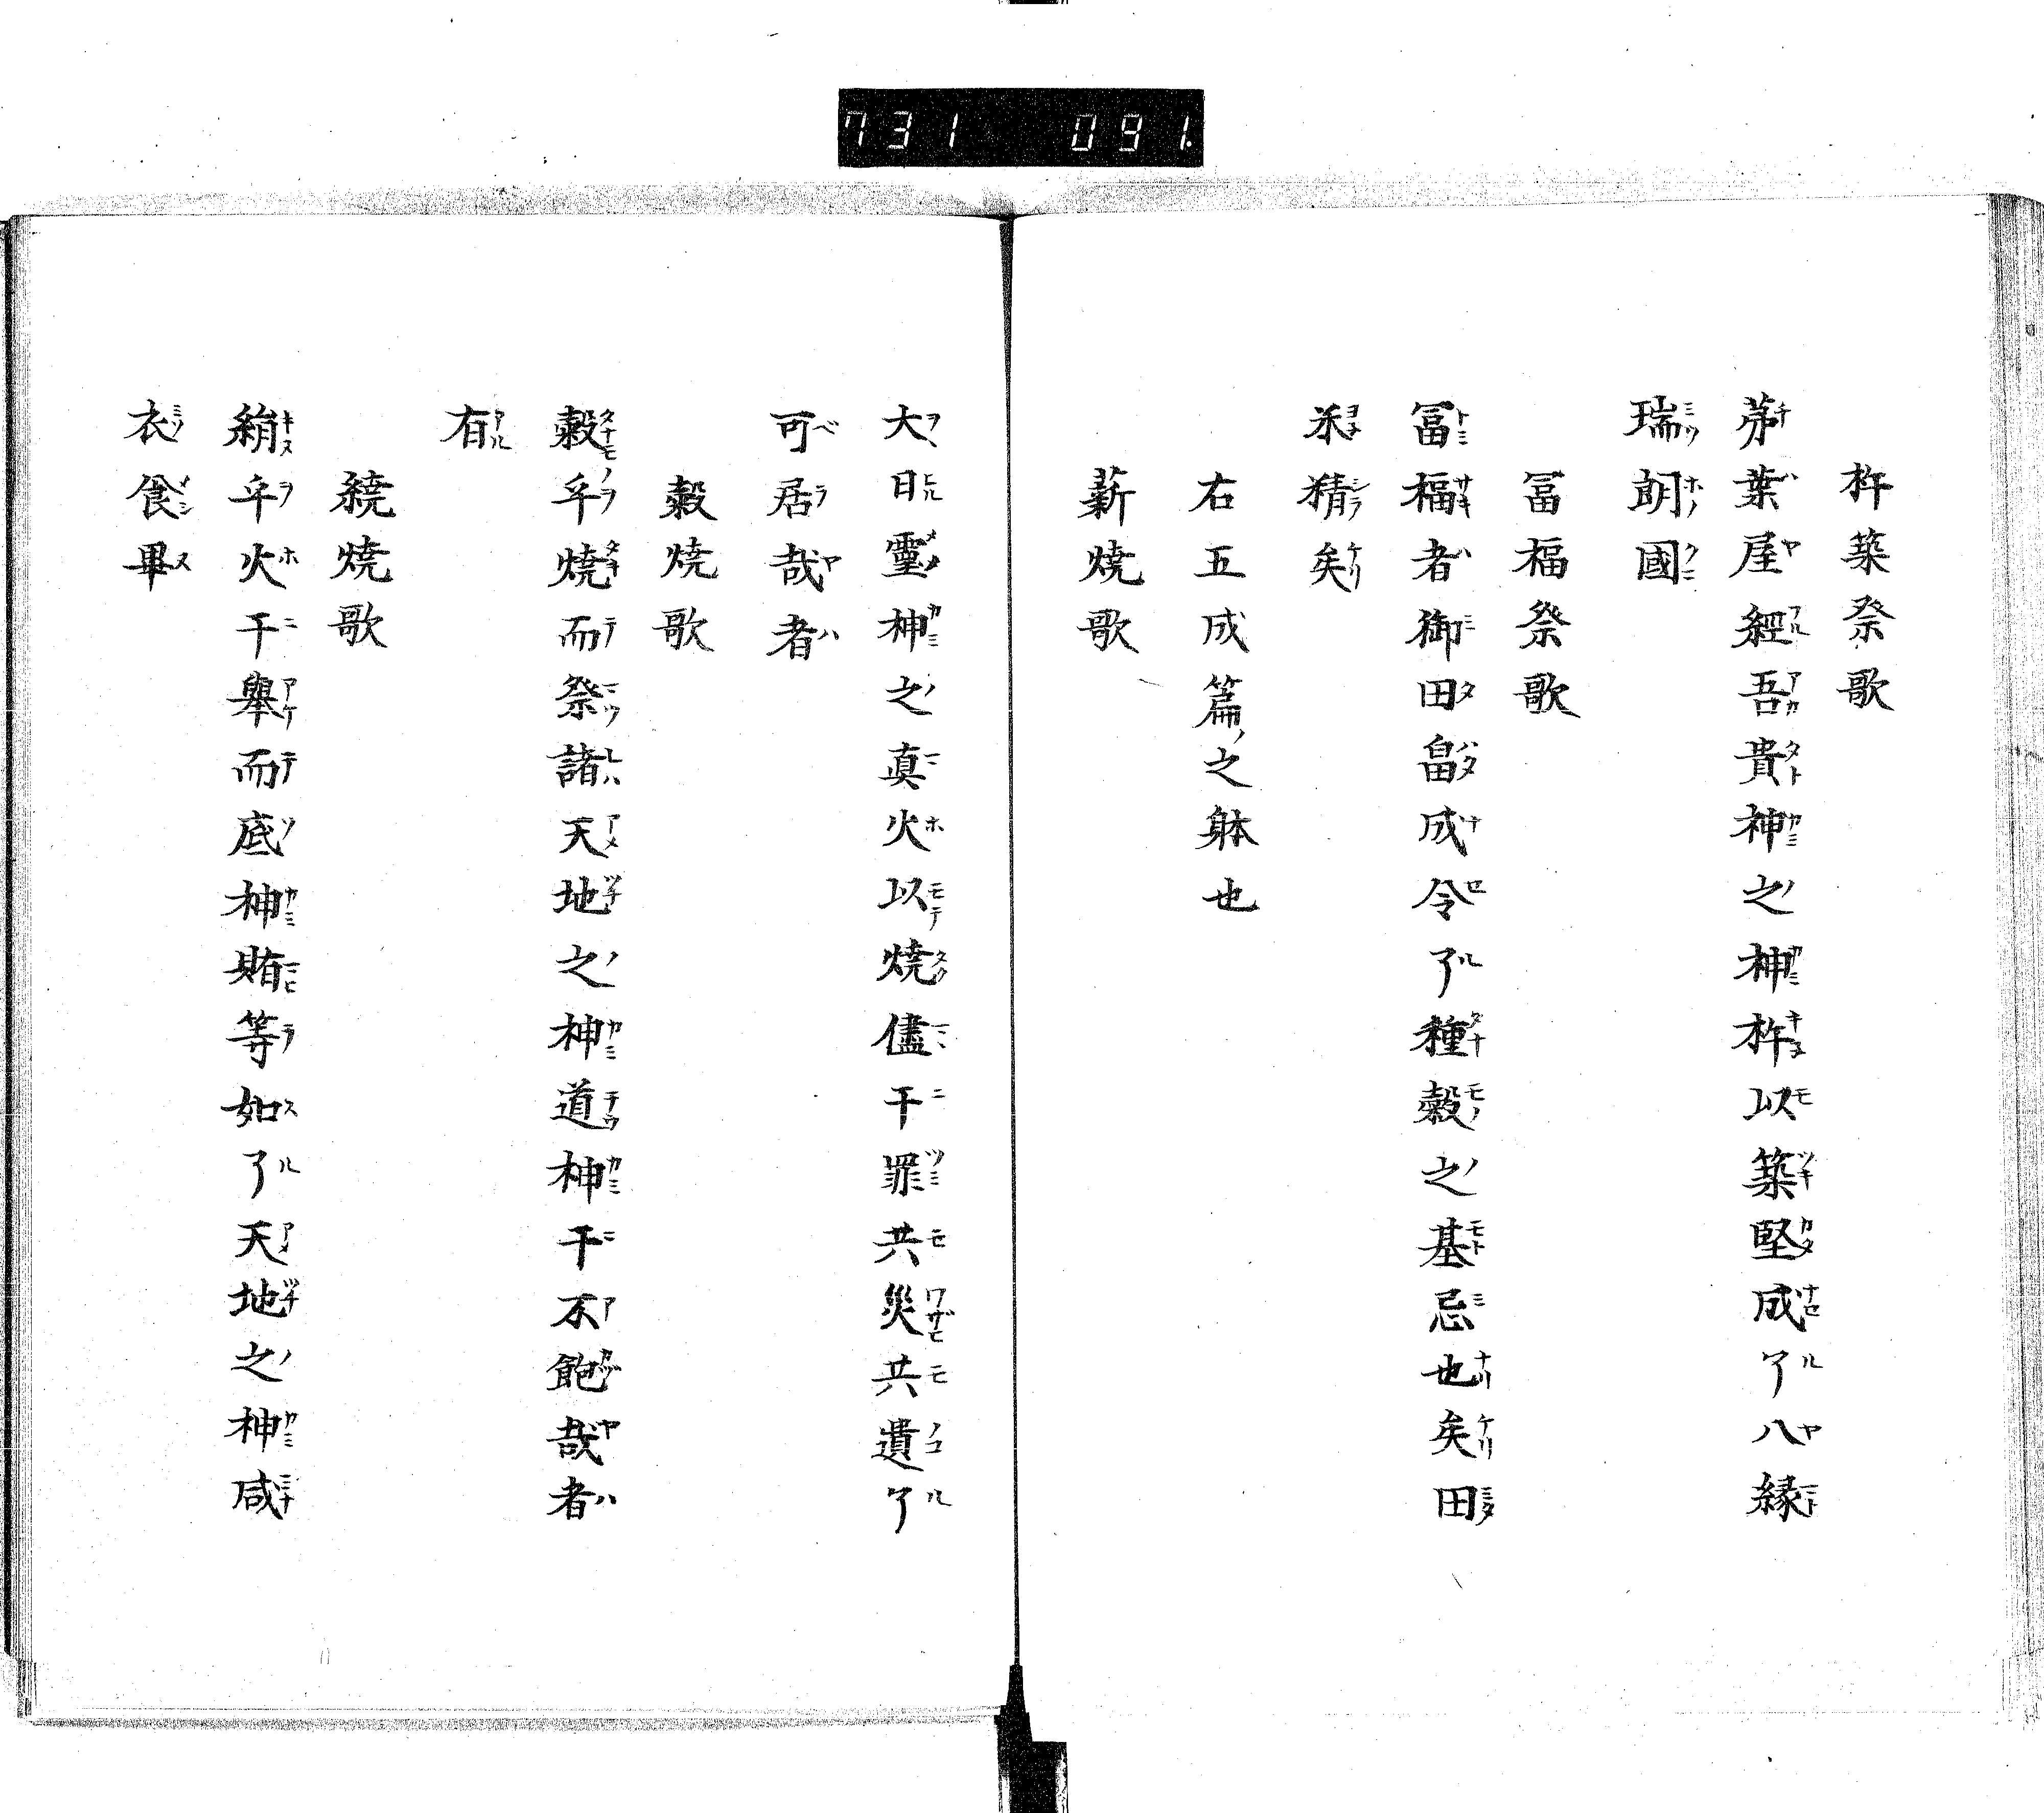 731 091.
杵築祭歌
茅葉屋經吾貴神之神杵以築堅成了八縁
瑞朗國
冨福祭歌
冨福者御田畠成令了種穀之基忌也矣田
米精矣
右五成篇之躰也
薪燒歌
大日靈神之真火以燒儘于罪共災共遺了
可居哉者
穀燒歌
穀乎燒而祭諸天地之神道神于不飽哉者
有
繞燒歌
絹乎火于舉而底神賄等如了天地之神咸
衣食畢